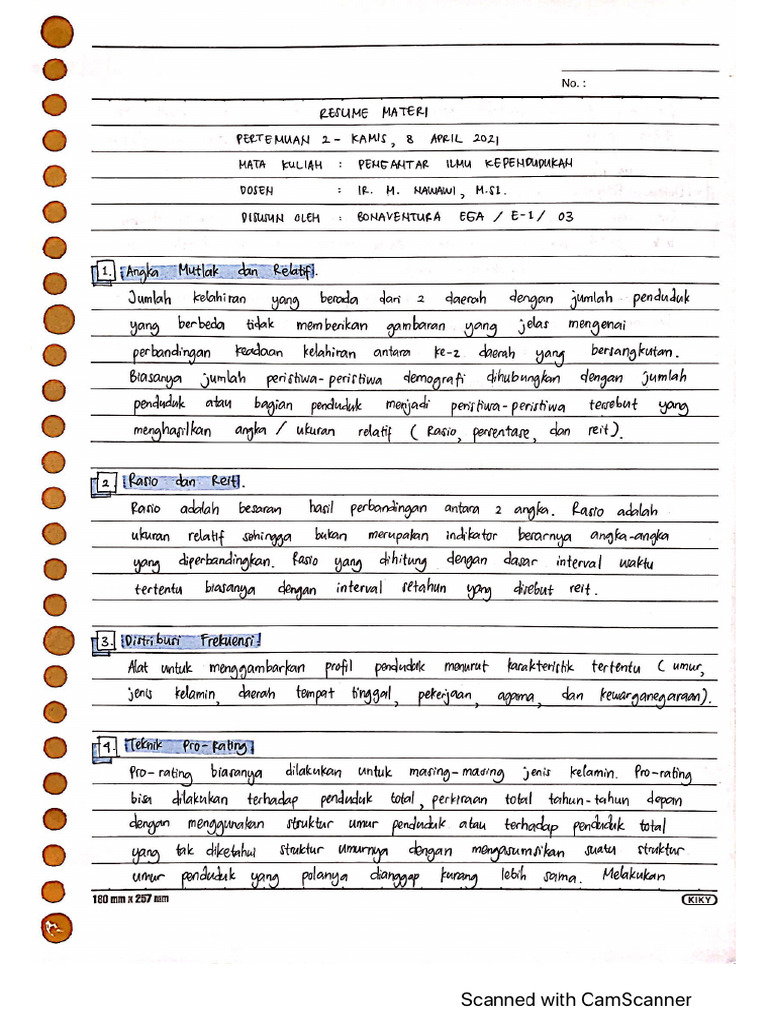 No. :
RESUME MATERI
PERTEMUAN 2 - KAMIS, 8 APRIL 2021
MATA KULIAH : PENGANTAR ILMU KEPENDUDUKAN
DOSEN : IR. M. NAWAWI, M.SI.
DISUSUN OLEH : BONAVENTURA EGA / E-1 / 03
1. Angka Mutlak dan Relatif.
Jumlah kelahiran yang berada dari 2 daerah dengan jumlah penduduk
yang berbeda tidak memberikan gambaran yang jelas mengenai
perbandingan keadaan kelahiran antara ke-2 daerah yang bersangkutan.
Biasanya jumlah peristiwa-peristiwa demografi dihubungkan dengan jumlah
penduduk atau bagian penduduk menjadi peristiwa-peristiwa tersebut yang
menghasilkan angka / ukuran relatif ( Rasio, persentase, dan reit ).
2. Rasio dan Reit.
Rasio adalah besaran hasil perbandingan antara 2 angka. Rasio adalah
ukuran relatif sehingga bukan merupakan indikator besarnya angka-angka
yang diperbandingkan. Rasio yang dihitung dengan dasar interval waktu
tertentu biasanya dengan interval setahun yang disebut reit.
3. Distribusi Frekuensi
Alat untuk menggambarkan profil penduduk menurut karakteristik tertentu ( umur,
jenis kelamin, daerah tempat tinggal, pekerjaan, agama, dan kewarganegaraan).
4. Teknik Pro-Rating
Pro-rating biasanya dilakukan untuk masing-masing jenis kelamin. Pro-rating
bisa dilakukan terhadap penduduk total, perkiraan total tahun-tahun depan
dengan menggunakan struktur umur penduduk atau terhadap penduduk total
yang tak diketahui struktur umurnya dengan mengasumsikan suatu struktur
umur penduduk yang polanya dianggap kurang lebih sama. Melakukan
180 mm x 257 mm KIKY
Scanned with CamScanner